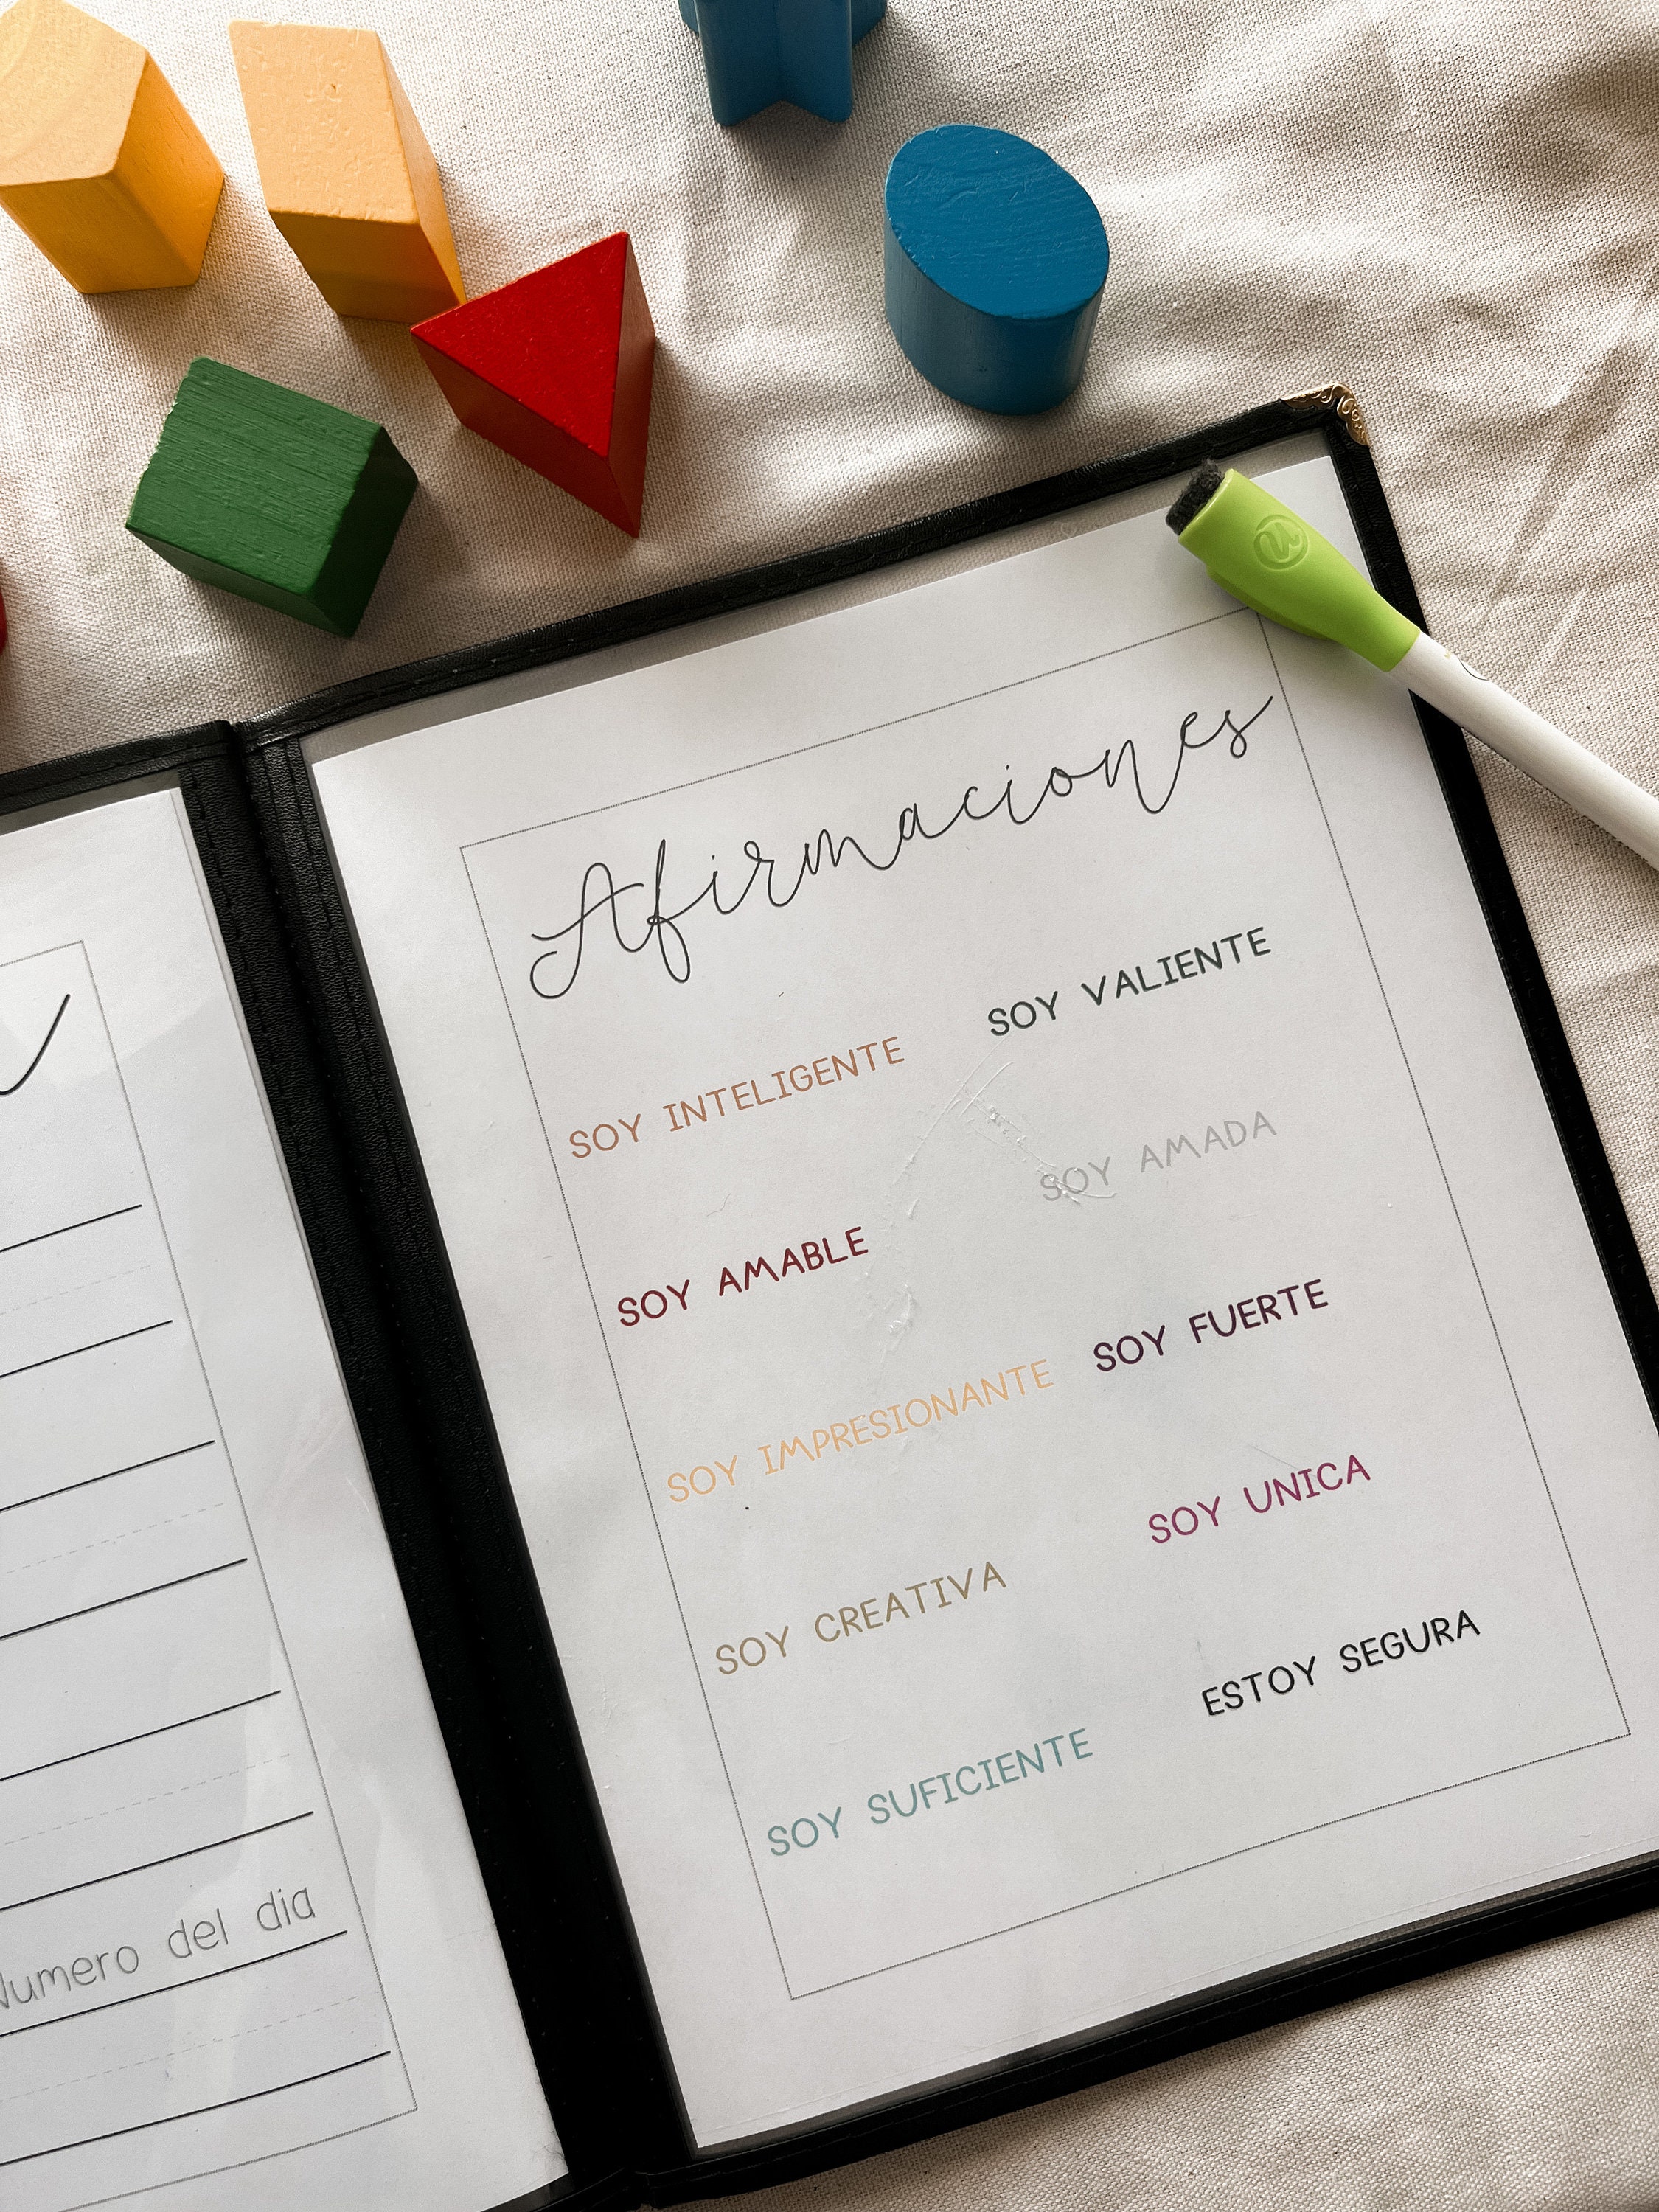 Afirmaciones
SOY INTELIGENTE
SOY VALIENTE
SOY AMABLE
SOY AMADA
SOY IMPRESIONANTE
SOY FUERTE
SOY CREATIVA
SOY UNICA
SOY SUFICIENTE
ESTOY SEGURA
Numero del dia